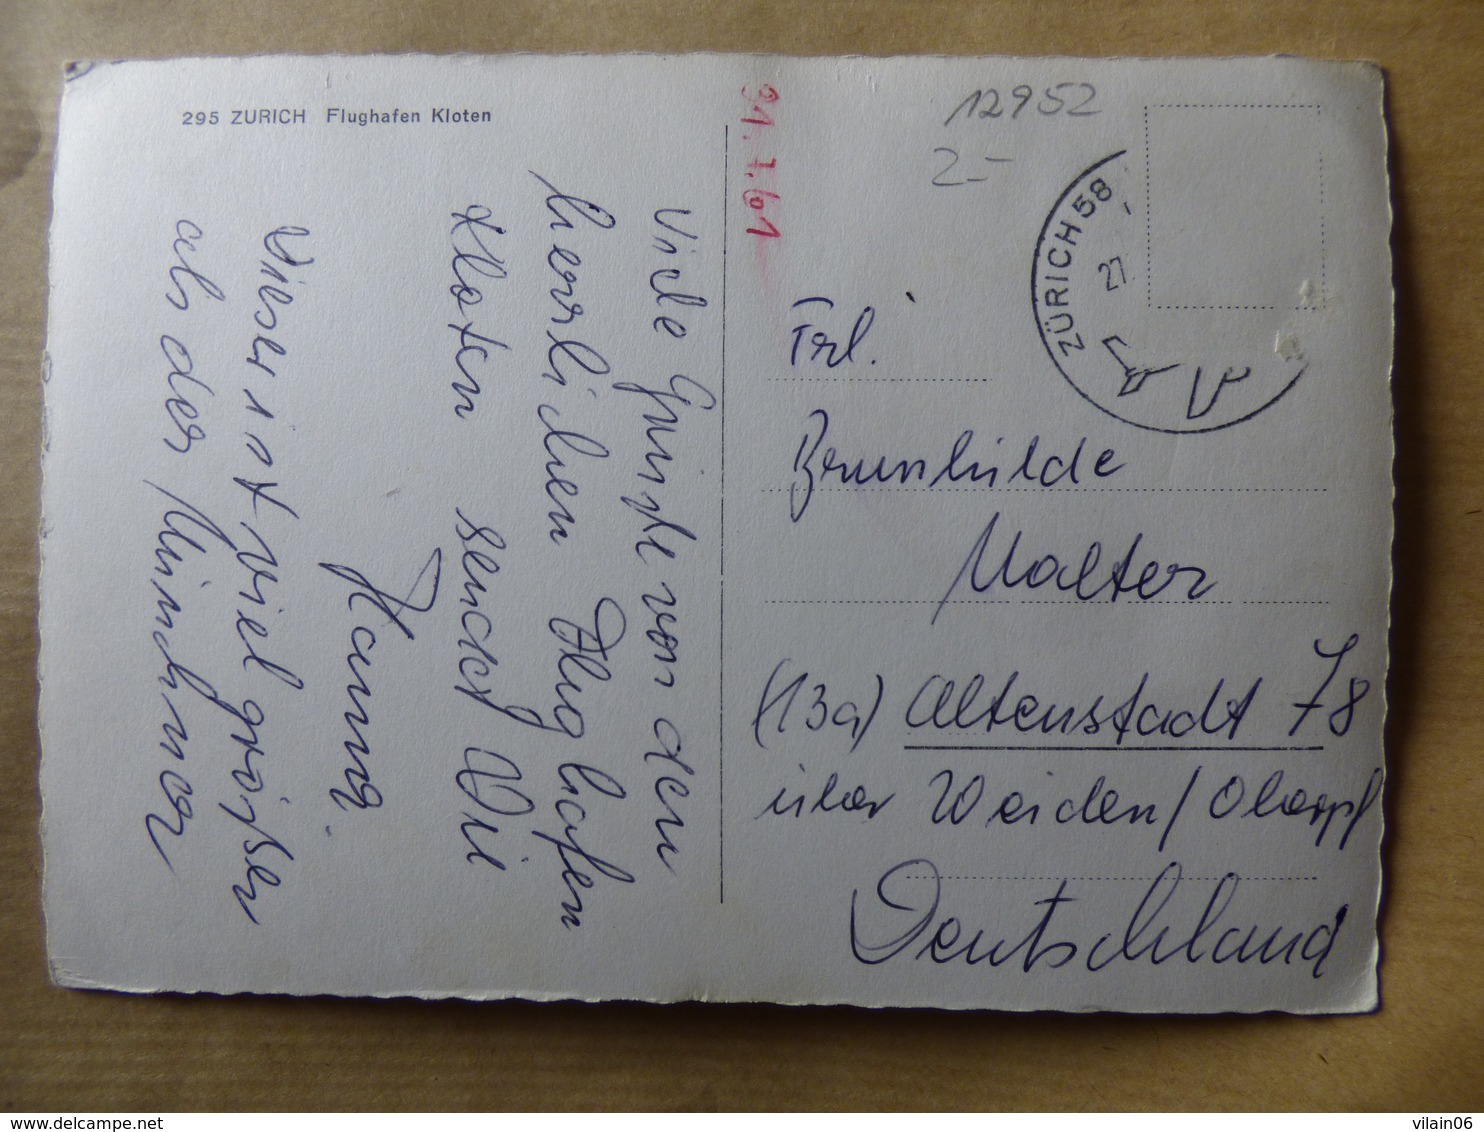 295 ZURICH Flughafen Kloten
Viele Grüße von den
herrlichen Flughafen
Kloten sendet Dir
Hanna.
Dieser ist viel größer
als der Münchner
31.7.61
12952
2.-
ZÜRICH 58
27.
Frl.
Brunhilde
Malter
(13a) Altenstadt 78
über Weiden/Oberpf
Deutschland
delcampe.net
vilain06